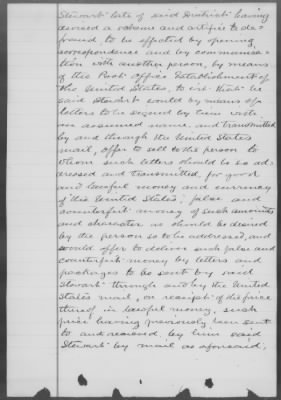 Stewart late of said District having
devised a scheme and artifice to de-
fraud to be effected by opening
correspondence and by communica-
tion with another person, by means
of the Post Office Establishment of
the United States, to wit that he
said Stewart would by means of
letters to be signed by him with
an assumed name and transmitted
by and through the United States
mail, offer to sell to the person to
whom such letters should be so ad-
dressed and transmitted, for good
and lawful money and currency
of the United States, false and
counterfeit money of such amounts
and character as should be desired
by the person so to be addressed, and
would offer to deliver such false and
counterfeit money by letters and
packages to be sent by said
Stewart through and by the United
States mail, on receipt of the price
thereof in lawful money, such
price having previously been sent
to and received by him said
Stewart by mail as aforesaid,